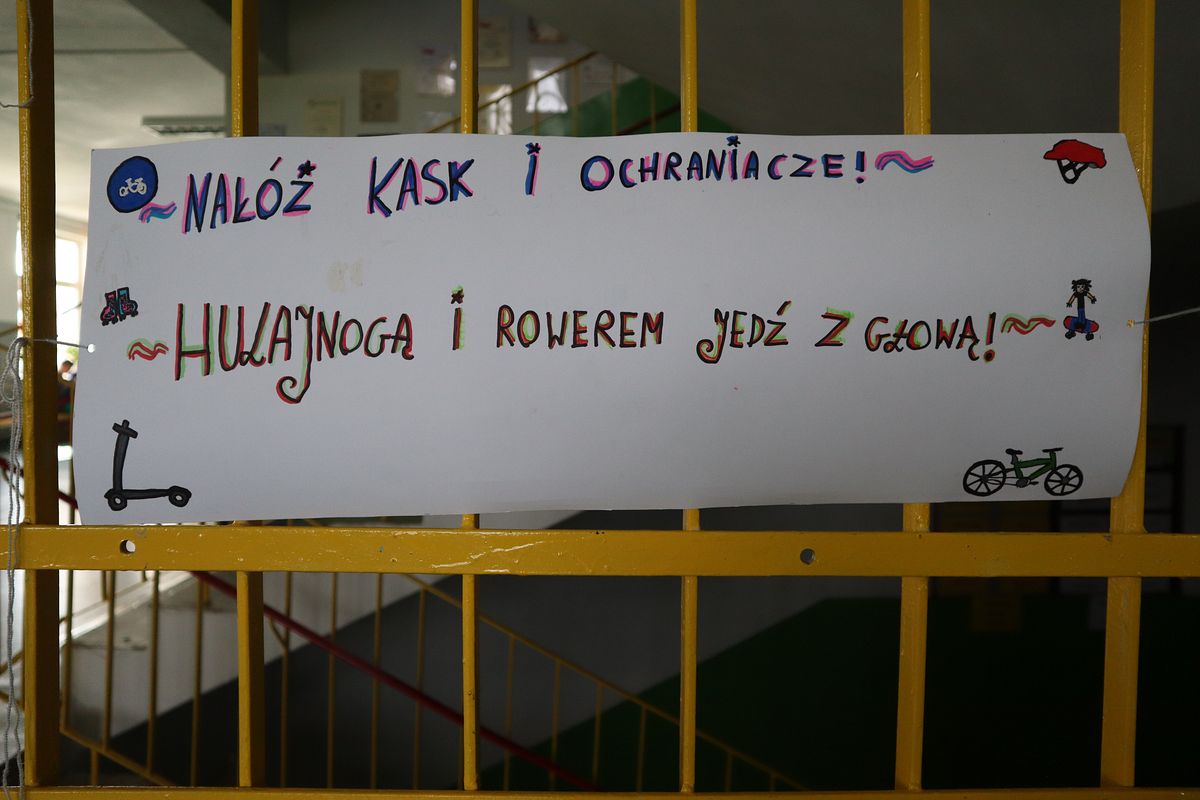 ~NAŁÓŻ KASK I OCHRANIACZE!~
~HULAJNOGĄ I ROWEREM JEDŹ Z GŁOWĄ!~